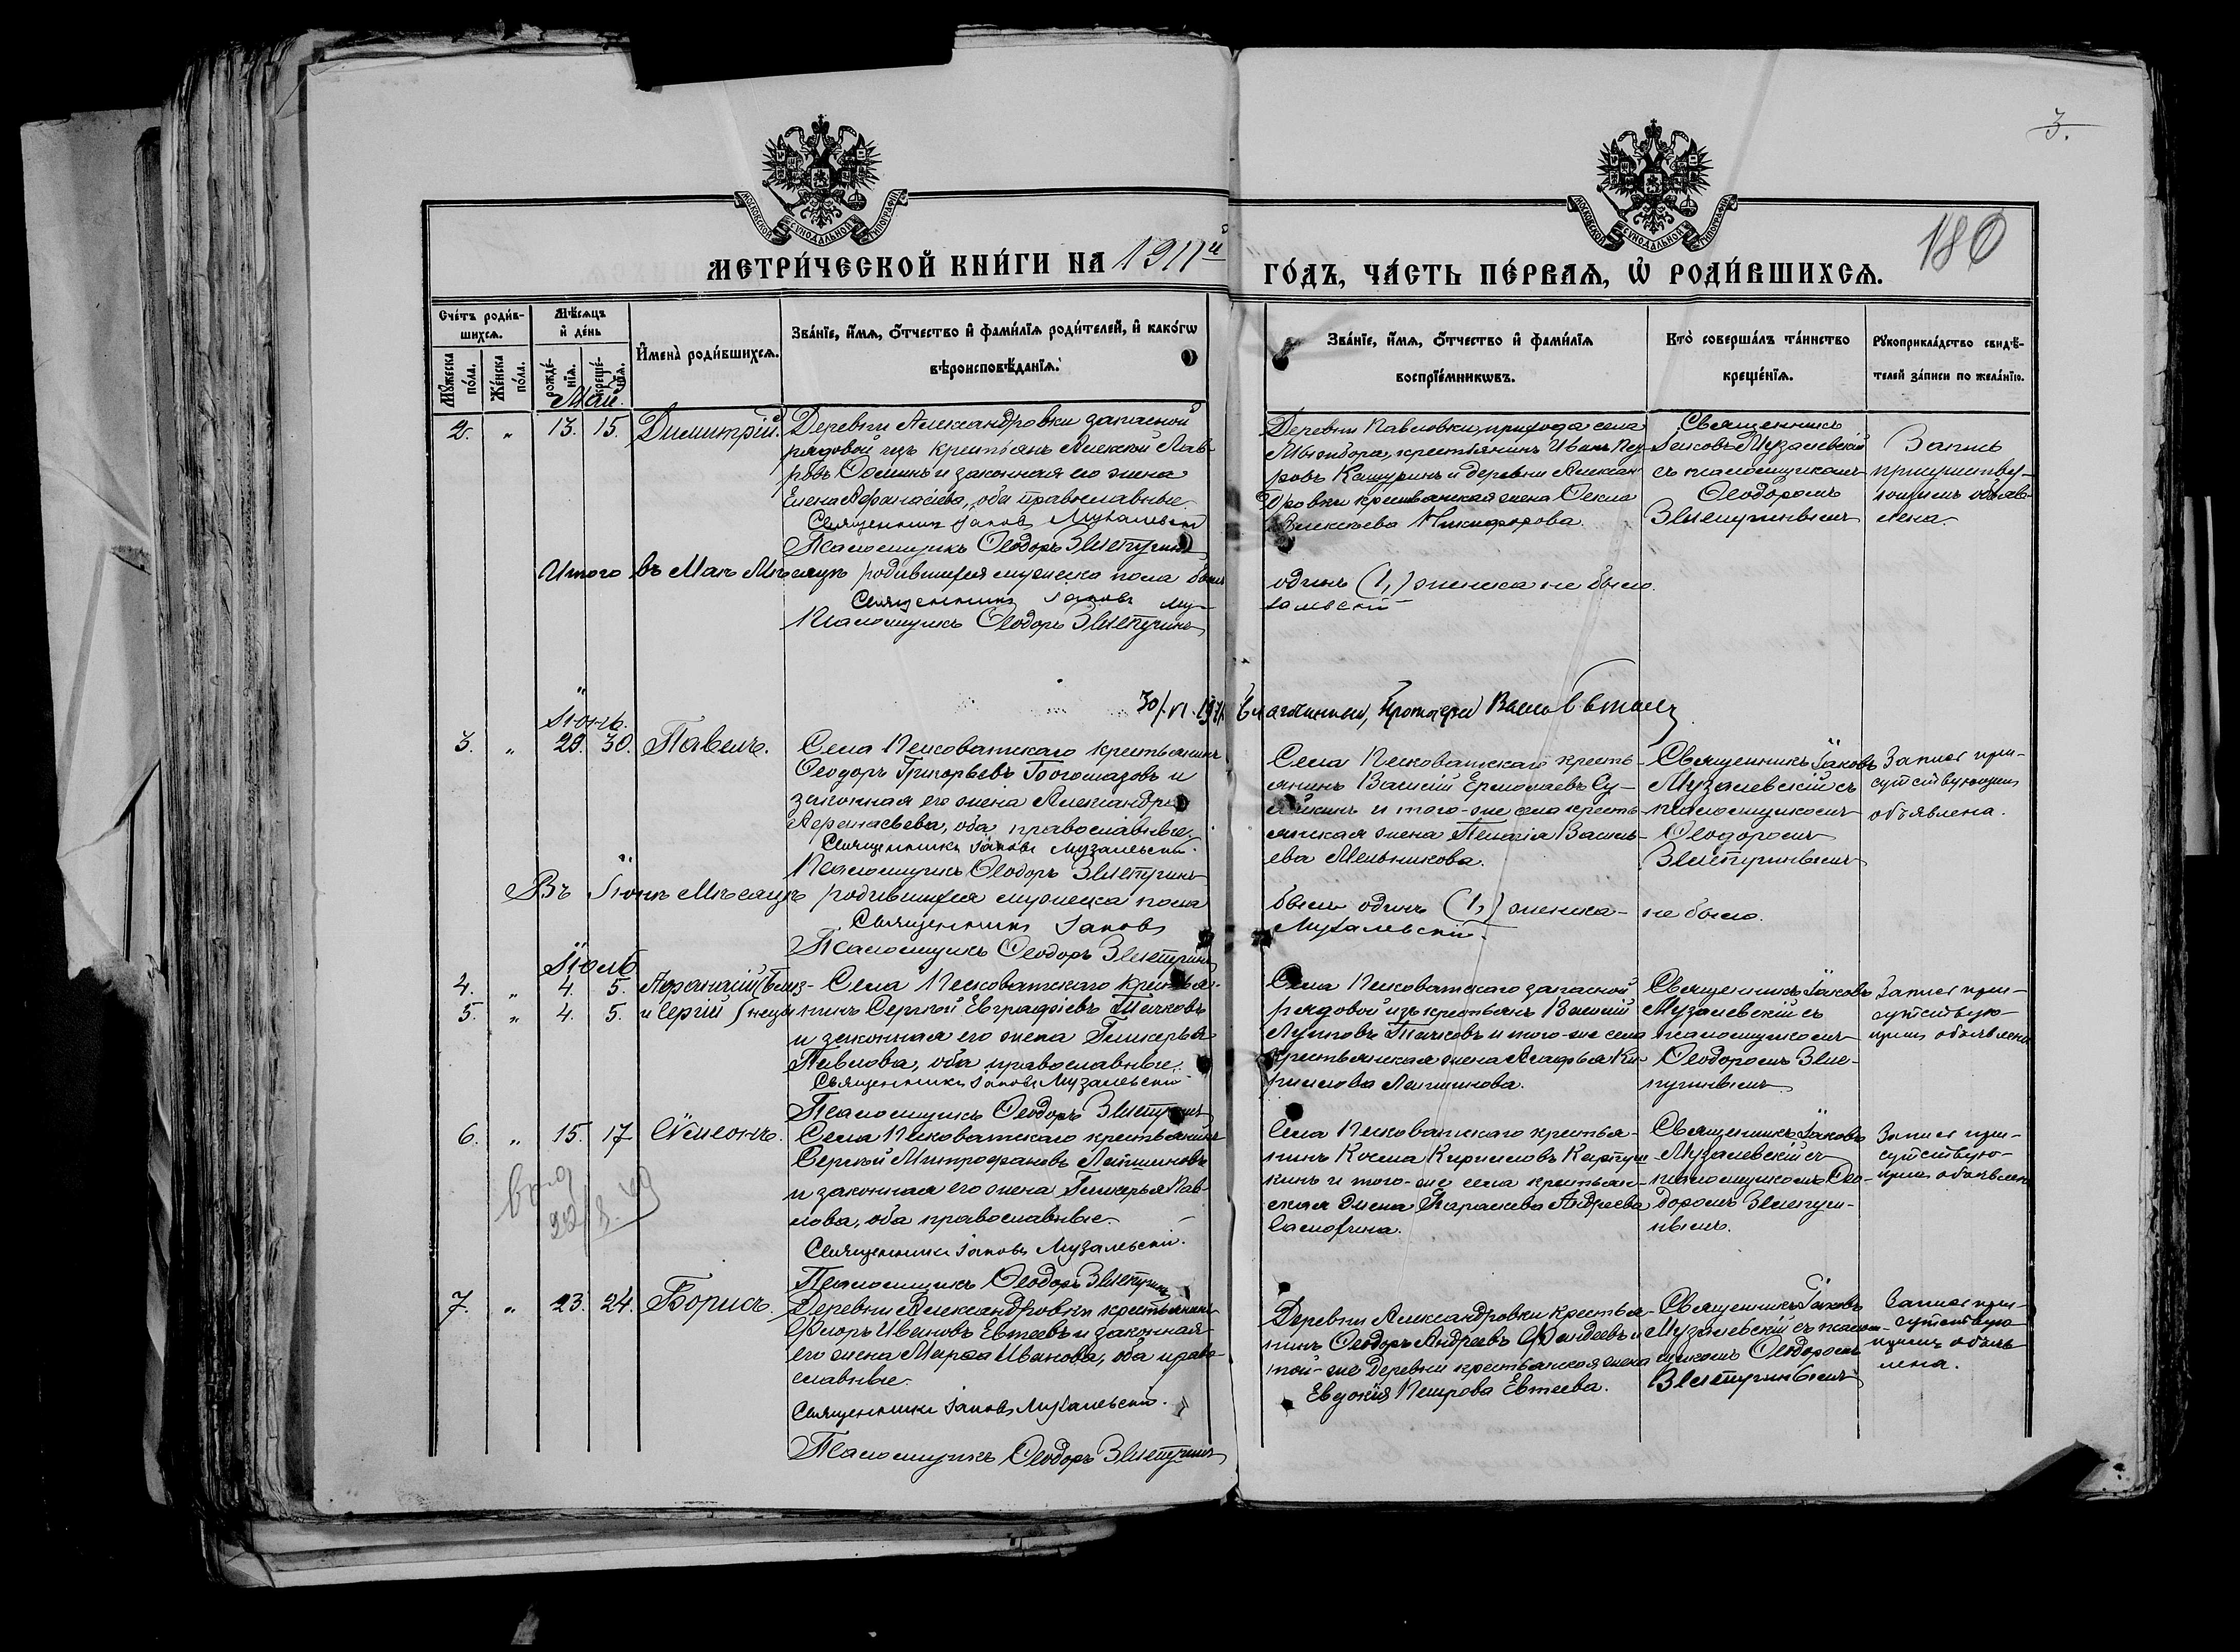 3.
180
МОСКОВСКОЙ СѴНОДАЛЬНОЙ ТИПОГРАФІИ
МОСКОВСКОЙ СѴНОДАЛЬНОЙ ТИПОГРАФІИ
МЕТРИ́ЧЕСКОЙ КНИ́ГИ НА 1911й ГО́ДЪ, ЧА́СТЬ ПЕ́РВАѦ, Ѡ҆ РОДИ́ВШИХСѦ.
Сче́тъ роди́в-
шихсѧ.
Мꙋ́жеска по́ла.
Же́нска по́ла.
Мѣ́сѧцъ
и҆ де́нь
рожде́-
нїѧ.
креще́-
нїѧ.
И҆мена̀ роди́вшихсѧ.
Зва́нїе, и҆́мѧ, ѻ҆́тчество и҆ фами́лїѧ роди́телей, и҆ како́гѡ
вѣроисповѣ́данїѧ.
Зва́нїе, и҆́мѧ, ѻ҆́тчество и҆ фами́лїѧ
воспрїе́мникѡвъ.
Кто̀ соверша́лъ та́инство
креще́нїѧ.
Рꙋкоприкла́дство свидѣ́-
телей за́писи по жела́нїю.
Май.
2. " 13. 15. Димитрій.
Деревни Александровки запасной
рядовой изъ крестьянъ Алексѣй Лав-
ровъ Ѳоминъ и законная его жена
Елена Афанасіева, оба православные.
Священникъ Іаковъ Музалевскій
Псаломщикъ Ѳеодоръ
Деревни Павловки, прихода села
крестьянинъ Иванъ Пет-
ровъ Кашуринъ и деревни Алексан-
дровки крестьянская жена Ѳекла
Алексѣева Никифорова.
Священникъ
Іаковъ Музалевскій
съ псаломщикомъ
Ѳеодоромъ
Запись
присутству-
ющимъ объяв-
лена.
Итого въ Маѣ Мѣсяцѣ родившихся мужеска пола былъ одинъ (1,) женска не было.
Священникъ Іаковъ Му-
залевскій
Псаломщикъ Ѳеодоръ
30/VI 1911 Благочинный, Протоіерей
Іюнь.
3. " 29. 30. Павелъ.
Села Песковатскаго крестьянинъ
Ѳеодоръ Григорьевъ Богомазовъ и
законная его жена Александра
Афанасьева, оба православные.
Священникъ Іаковъ Музалевскій.
Псаломщикъ Ѳеодоръ
Села Песковатскаго кресть-
янинъ Василій Ермолаевъ Су-
и того-же села кресть-
янская жена Пелагія Василь-
ева Мельникова.
Священникъ Іаковъ
Музалевскій съ
псаломщикомъ
Ѳеодоромъ
Запись при-
сутствующимъ
объявлена.
Въ Іюнѣ Мѣсяцѣ родившихся мужеска пола былъ одинъ (1,) женска- не было.
Священникъ Іаковъ
Музалевскій.
Псаломщикъ Ѳеодоръ
Іюль
4. " 4. 5. Афанасій (близ-
5. " 4. 5. и Сергій (нецы
Села Песковатскаго крестья-
нинъ Сергѣй Евграфіевъ Ткачковъ
и законная его жена Гликерья
Павлова, оба православные.
Священникъ Іаковъ Музалевскій
Псаломщикъ Ѳеодоръ
Села Песковатскаго запасной
рядовой изъ крестьянъ Василій
и того-же села
крестьянская жена Агафья Ки-
рилова Лапшинова.
Священникъ Іаковъ
Музалевскій съ
псаломщикомъ
Ѳеодоромъ
Запись при-
сутствую-
щимъ объявлена
6. " 15. 17 Сѵмеонъ.
Села Песковатскаго крестьянинъ
Сергѣй Митрофановъ Лапшиновъ
и законная его жена Гликерья Пав-
лова, оба православные.
Священникъ Іаковъ Музалевскій.
Псаломщикъ Ѳеодоръ
Села Песковатскаго крестья-
нинъ Косма Кириловъ
и того-же села крестьян-
ская жена Параскева Андреева
Священникъ Іаковъ
Музалевскій съ
псаломщикомъ Ѳео-
доромъ
Запись при-
сутствую-
щимъ объявлена
7. " 23. 24. Борисъ.
Деревни Александровки крестьянинъ
Флоръ Ивановъ Евтеевъ и законная
его жена Марѳа Иванова, оба право-
славные.
Священникъ Іаковъ Музалевскій.
Псаломщикъ Ѳеодоръ
Деревни Александровки крестья-
нинъ Ѳеодоръ Андреевъ Фандеевъ и
той-же деревни крестьянская жена
Евдокія Петрова Евтеева.
Священникъ Іаковъ
Музалевскій съ псалом-
щикомъ Ѳеодоромъ
Запись при-
сутствую-
щимъ объяв-
лена.